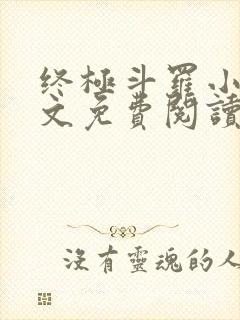 终极斗羅小
文免費閱讀
沒有靈魂的人